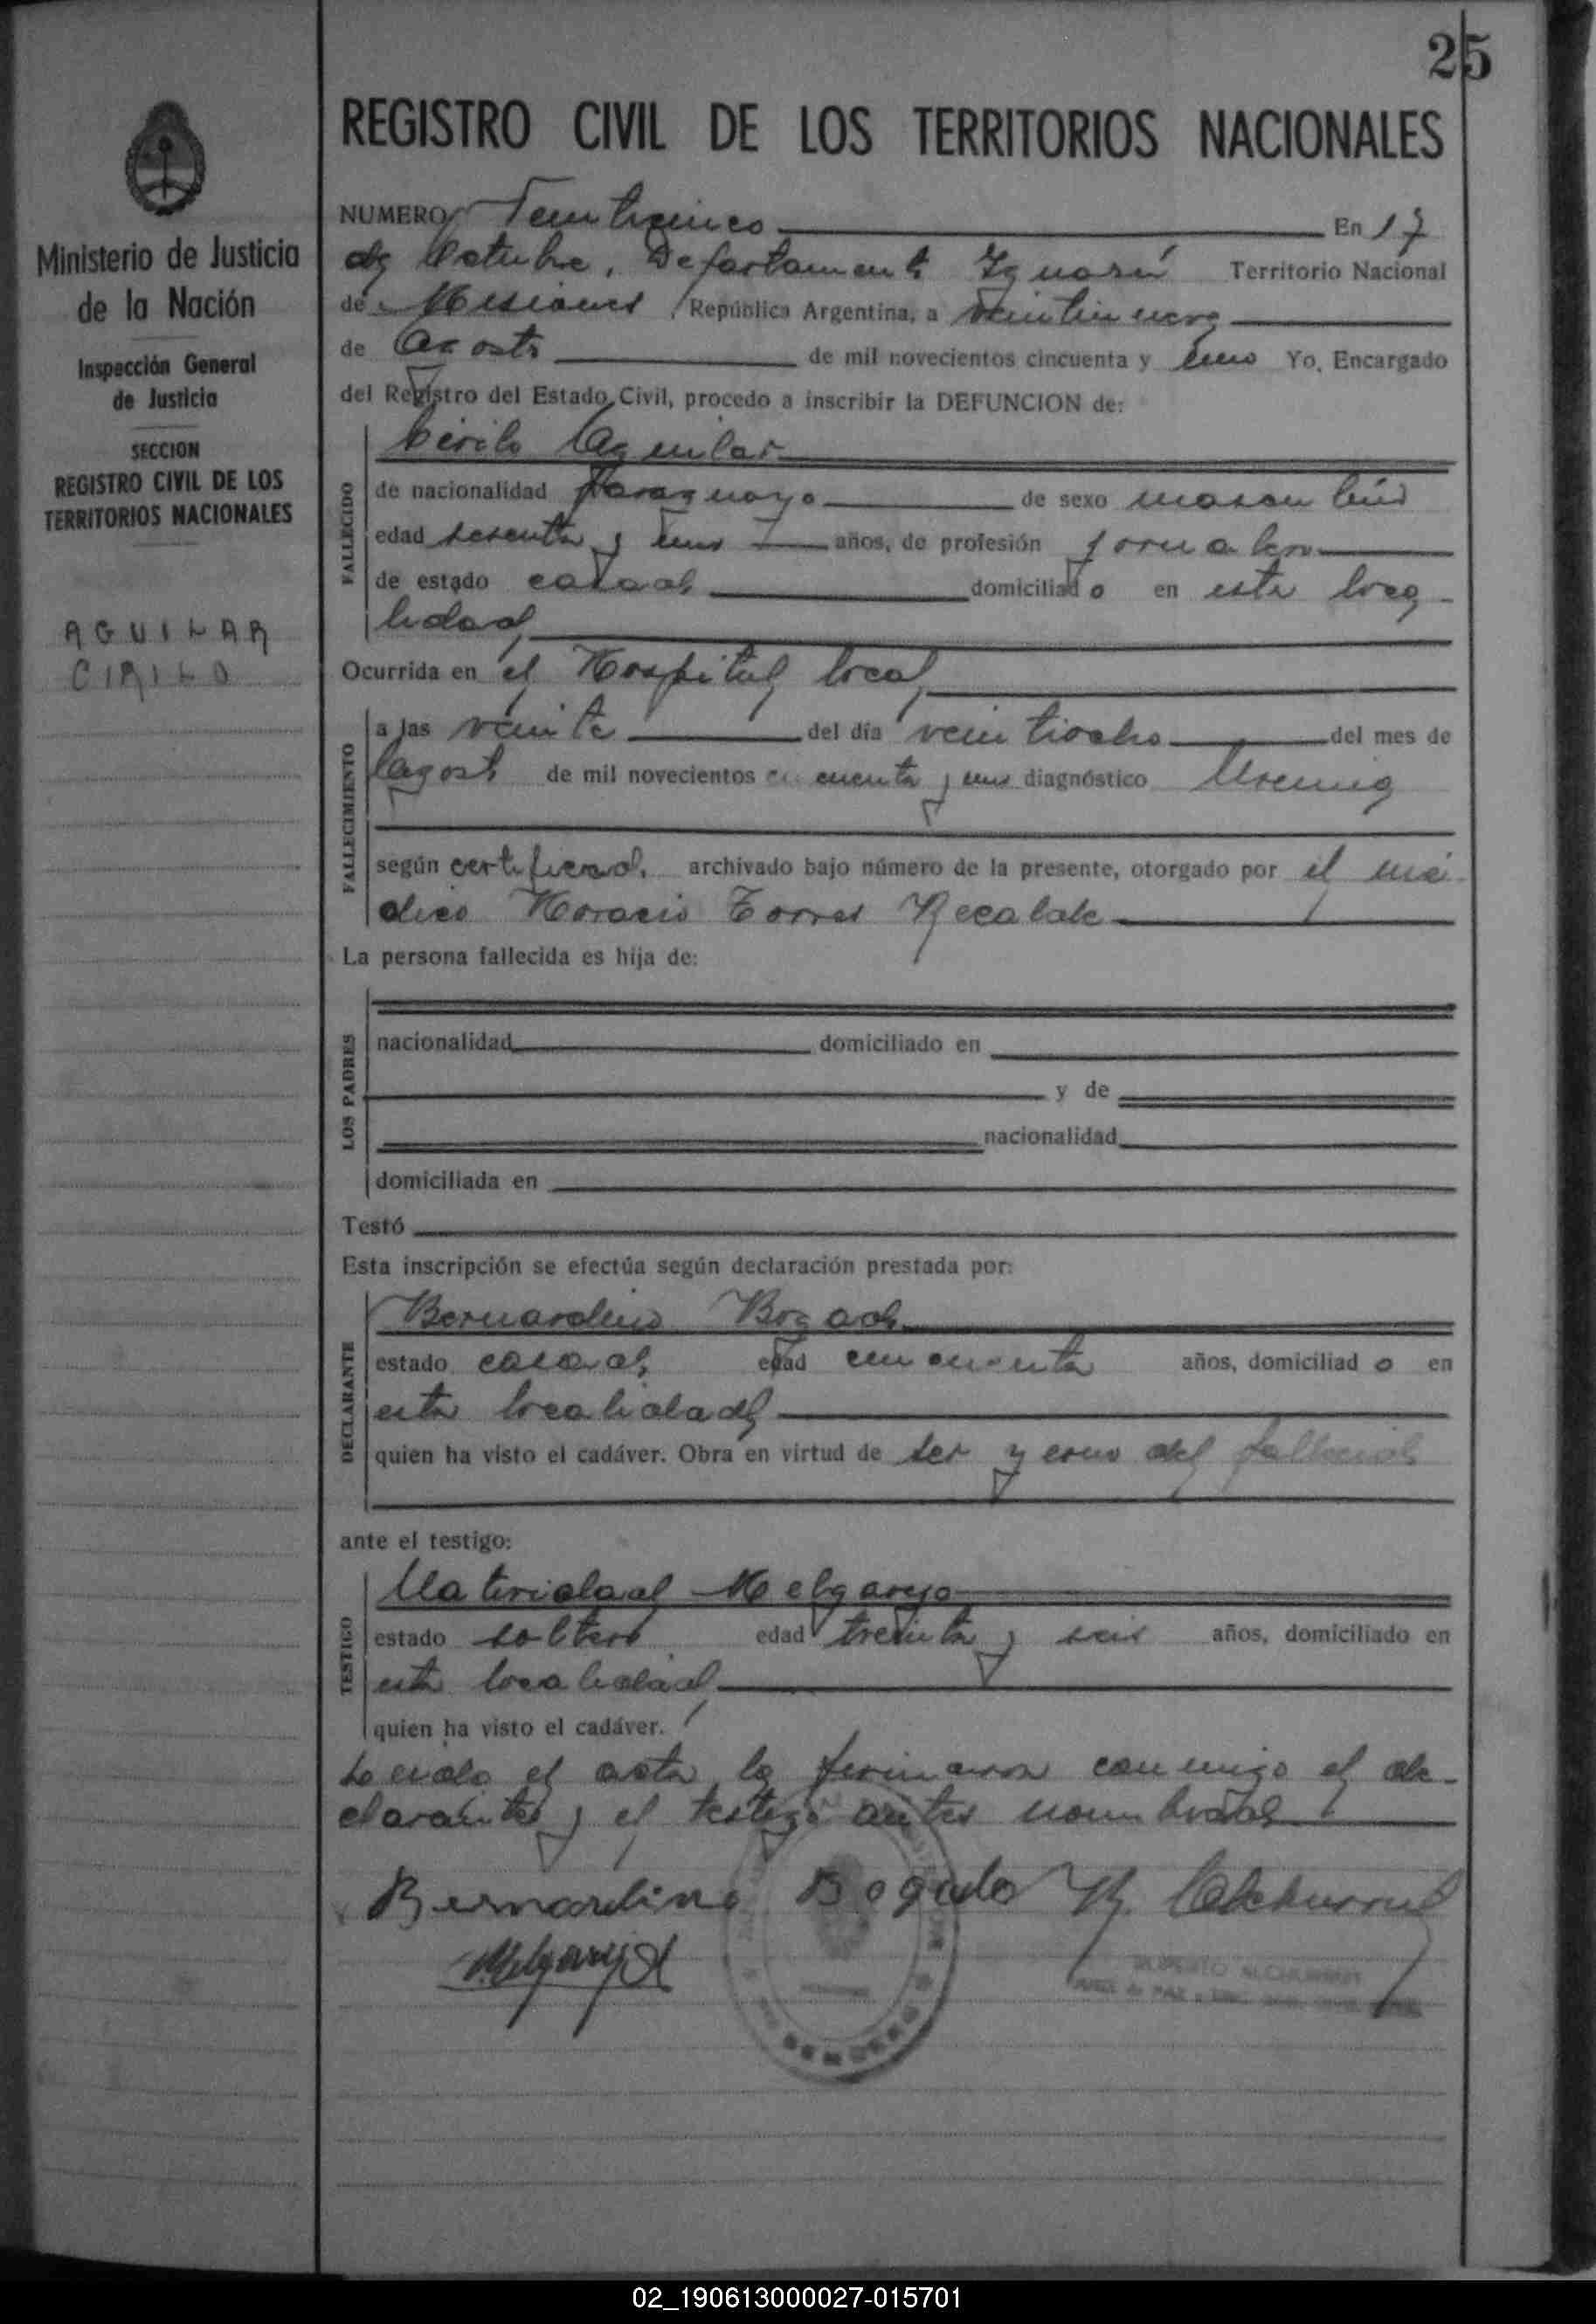 25
REGISTRO CIVIL DE LOS TERRITORIOS NACIONALES
Ministerio de Justicia
de la Nación
Inspección General
de Justicia
SECCION
REGISTRO CIVIL DE LOS
TERRITORIOS NACIONALES
AGUILAR
CIRILO
NUMERO Veinticinco En 17
de Octubre, Departamento Iguazú Territorio Nacional
de Misiones, República Argentina, a veintinueve
de Agosto de mil novecientos cincuenta y uno Yo, Encargado
del Registro del Estado Civil, procedo a inscribir la DEFUNCION de:
FALLECIDO
Cirilo Aguilar
de nacionalidad Paraguaya de sexo masculino
edad sesenta y uno años, de profesión jornalero
de estado casado domiciliado en esta loca-
lidad
Ocurrida en el Hospital local
FALLECIMIENTO
a las veinte del día veintiocho del mes de
Agosto de mil novecientos cincuenta y uno diagnóstico Uremia
según certificado archivado bajo número de la presente, otorgado por el mé-
dico Horacio Torres Recalde
La persona fallecida es hija de:
LOS PADRES
nacionalidad domiciliado en
y de
nacionalidad
domiciliada en
Testó
Esta inscripción se efectúa según declaración prestada por:
DECLARANTE
Bernardino Bogado
estado casado edad cincuenta años, domiciliado en
esta localidad
quien ha visto el cadáver. Obra en virtud de ser yerno del fallecido
ante el testigo:
TESTIGO
Natividad Melgarejo
estado soltero edad treinta y seis años, domiciliado en
esta localidad
quien ha visto el cadáver.
Leida el acta la firmaron conmigo el de-
clarante y el testigo antes nombrados
Bernardino Bogado R. Alchurrut
Melgarejo